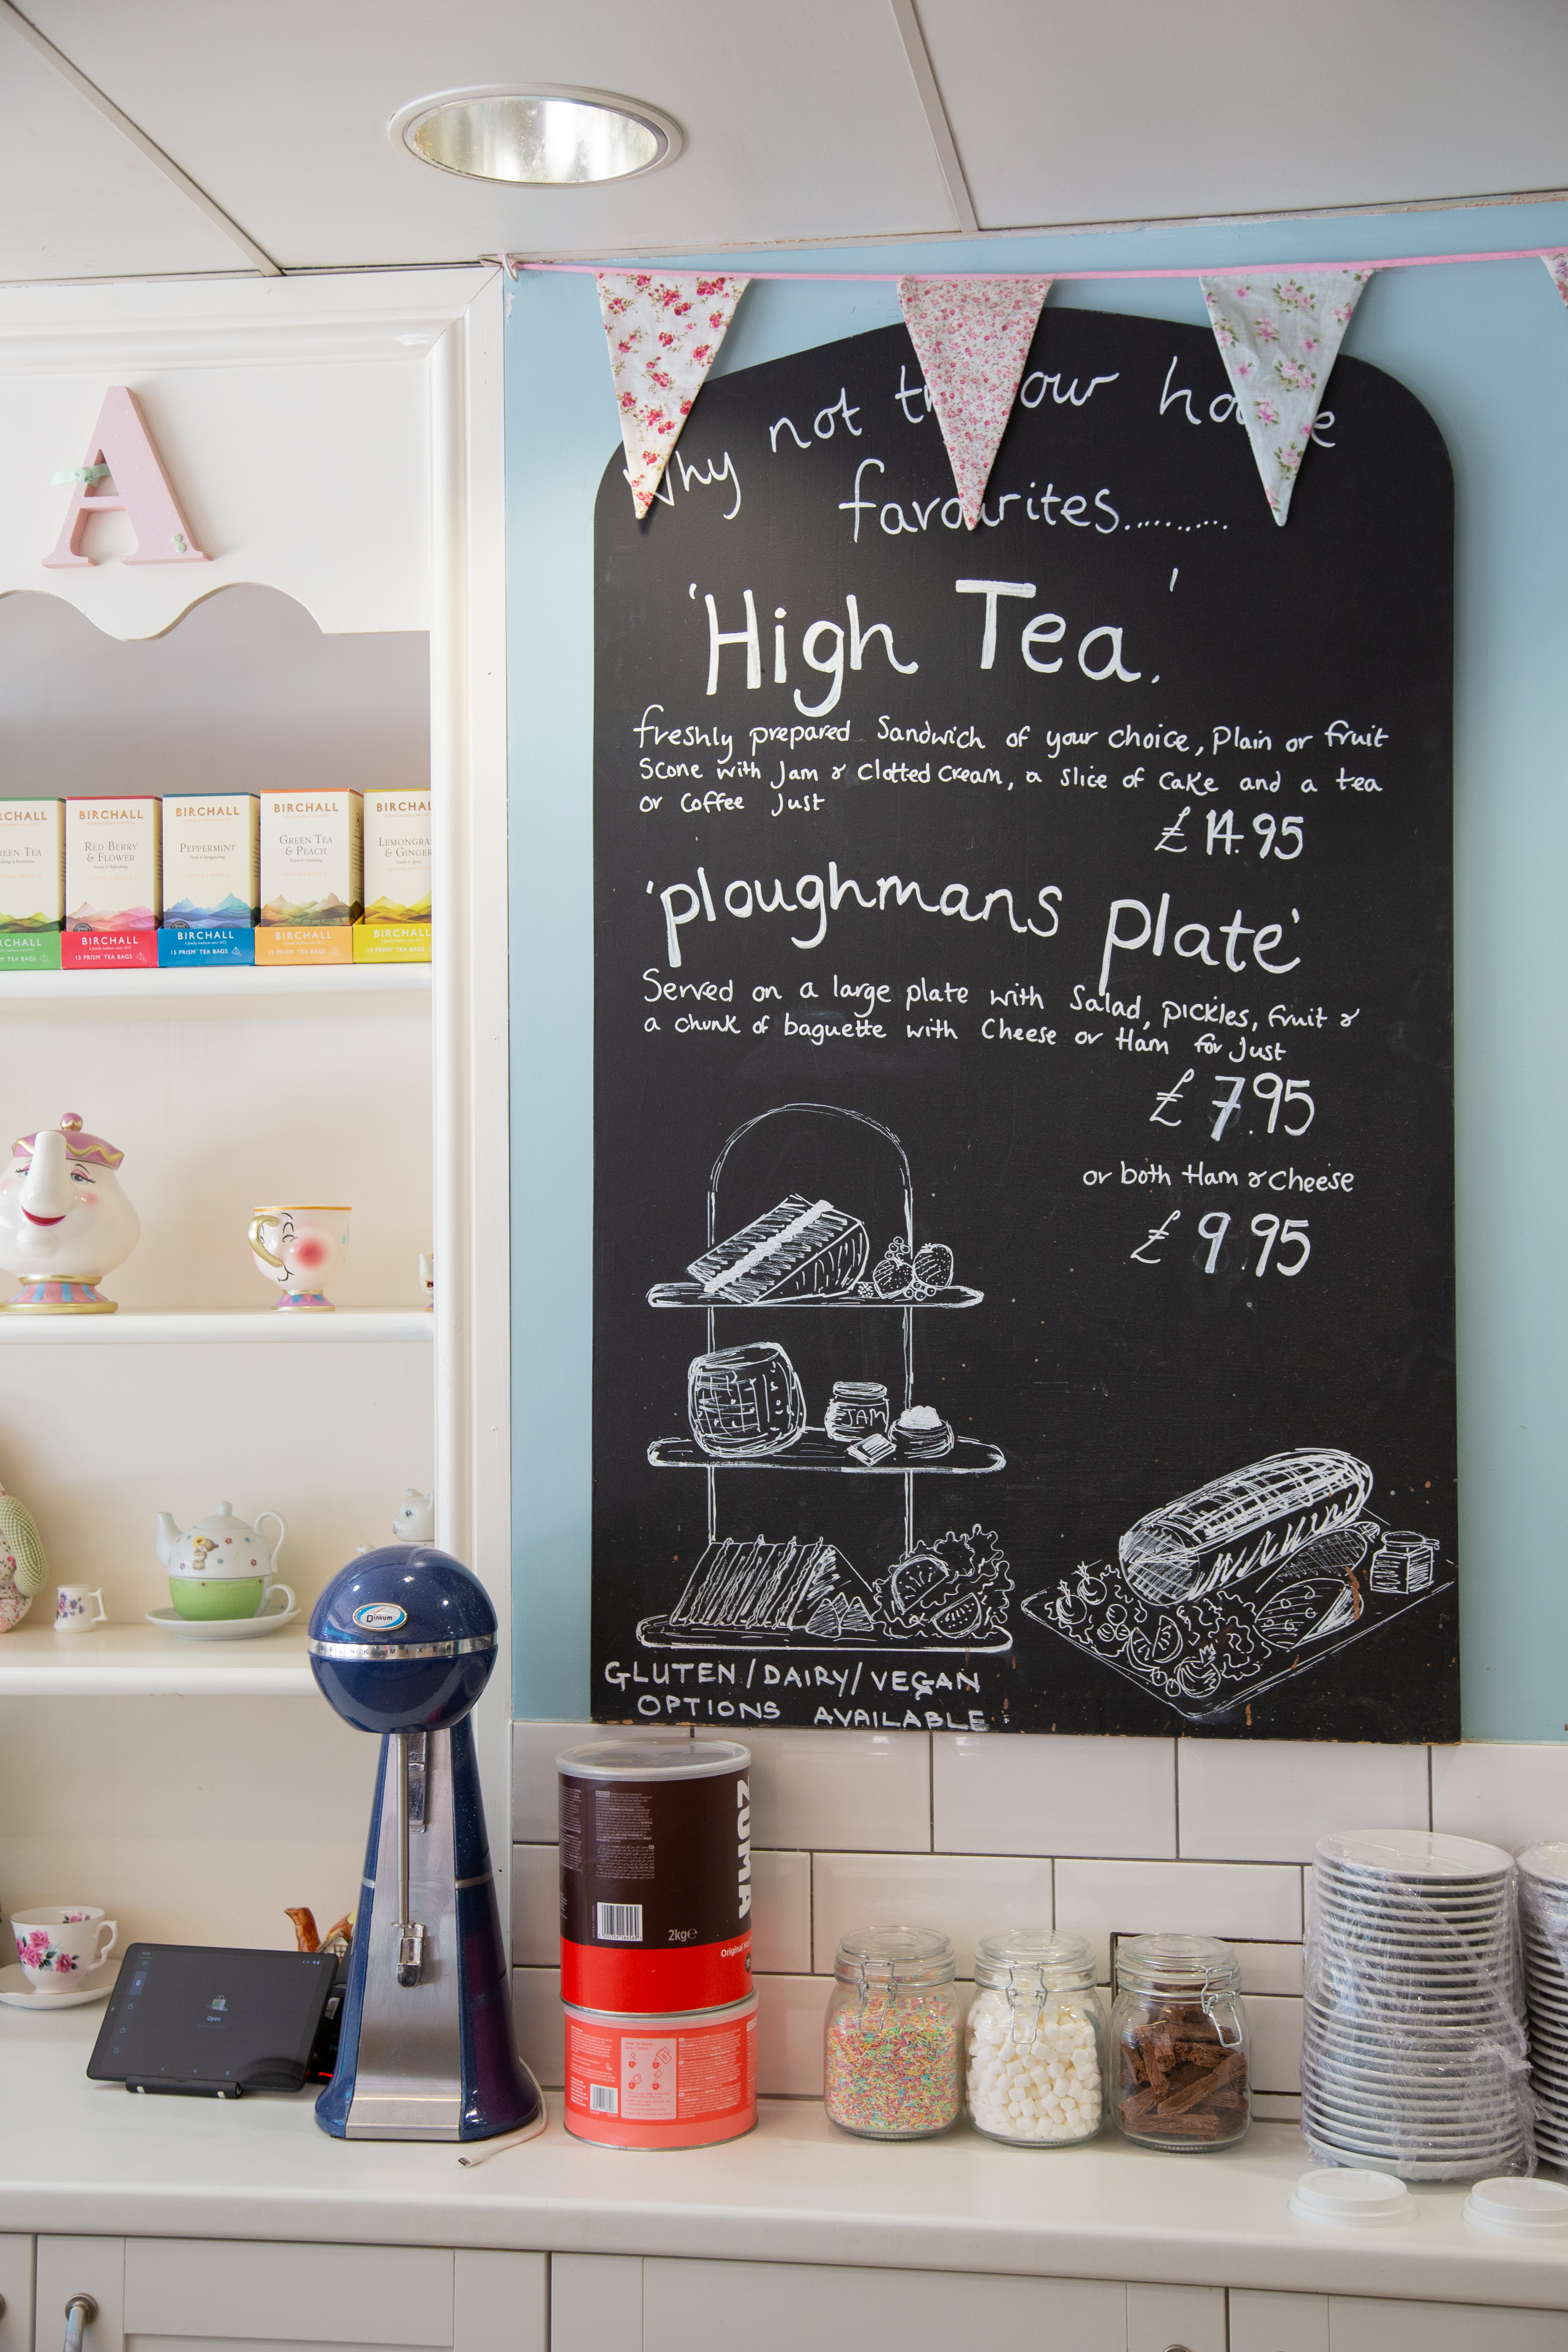 Why not try our home
favourites..........
'High Tea.'
freshly prepared Sandwich of your choice, Plain or fruit
Scone with Jam & Clotted Cream, a slice of cake and a tea
or Coffee Just
£14.95
'ploughmans plate'
Served on a large plate with Salad, pickles, fruit &
a chunk of baguette with Cheese or Ham for Just
£7.95
or both Ham & Cheese
£9.95
JAM
GLUTEN/DAIRY/VEGAN
OPTIONS AVAILABLE
A
BIRCHALL
RED BERRY
& FLOWER
BIRCHALL
15 PRISM TEA BAGS
BIRCHALL
PEPPERMINT
BIRCHALL
15 PRISM TEA BAGS
BIRCHALL
GREEN TEA
& PEACH
BIRCHALL
15 PRISM TEA BAGS
& GINGER
BIRCHALL
15 PRISM TEA BAGS
Dinkum
Open
ZUMA
2kg e
Original